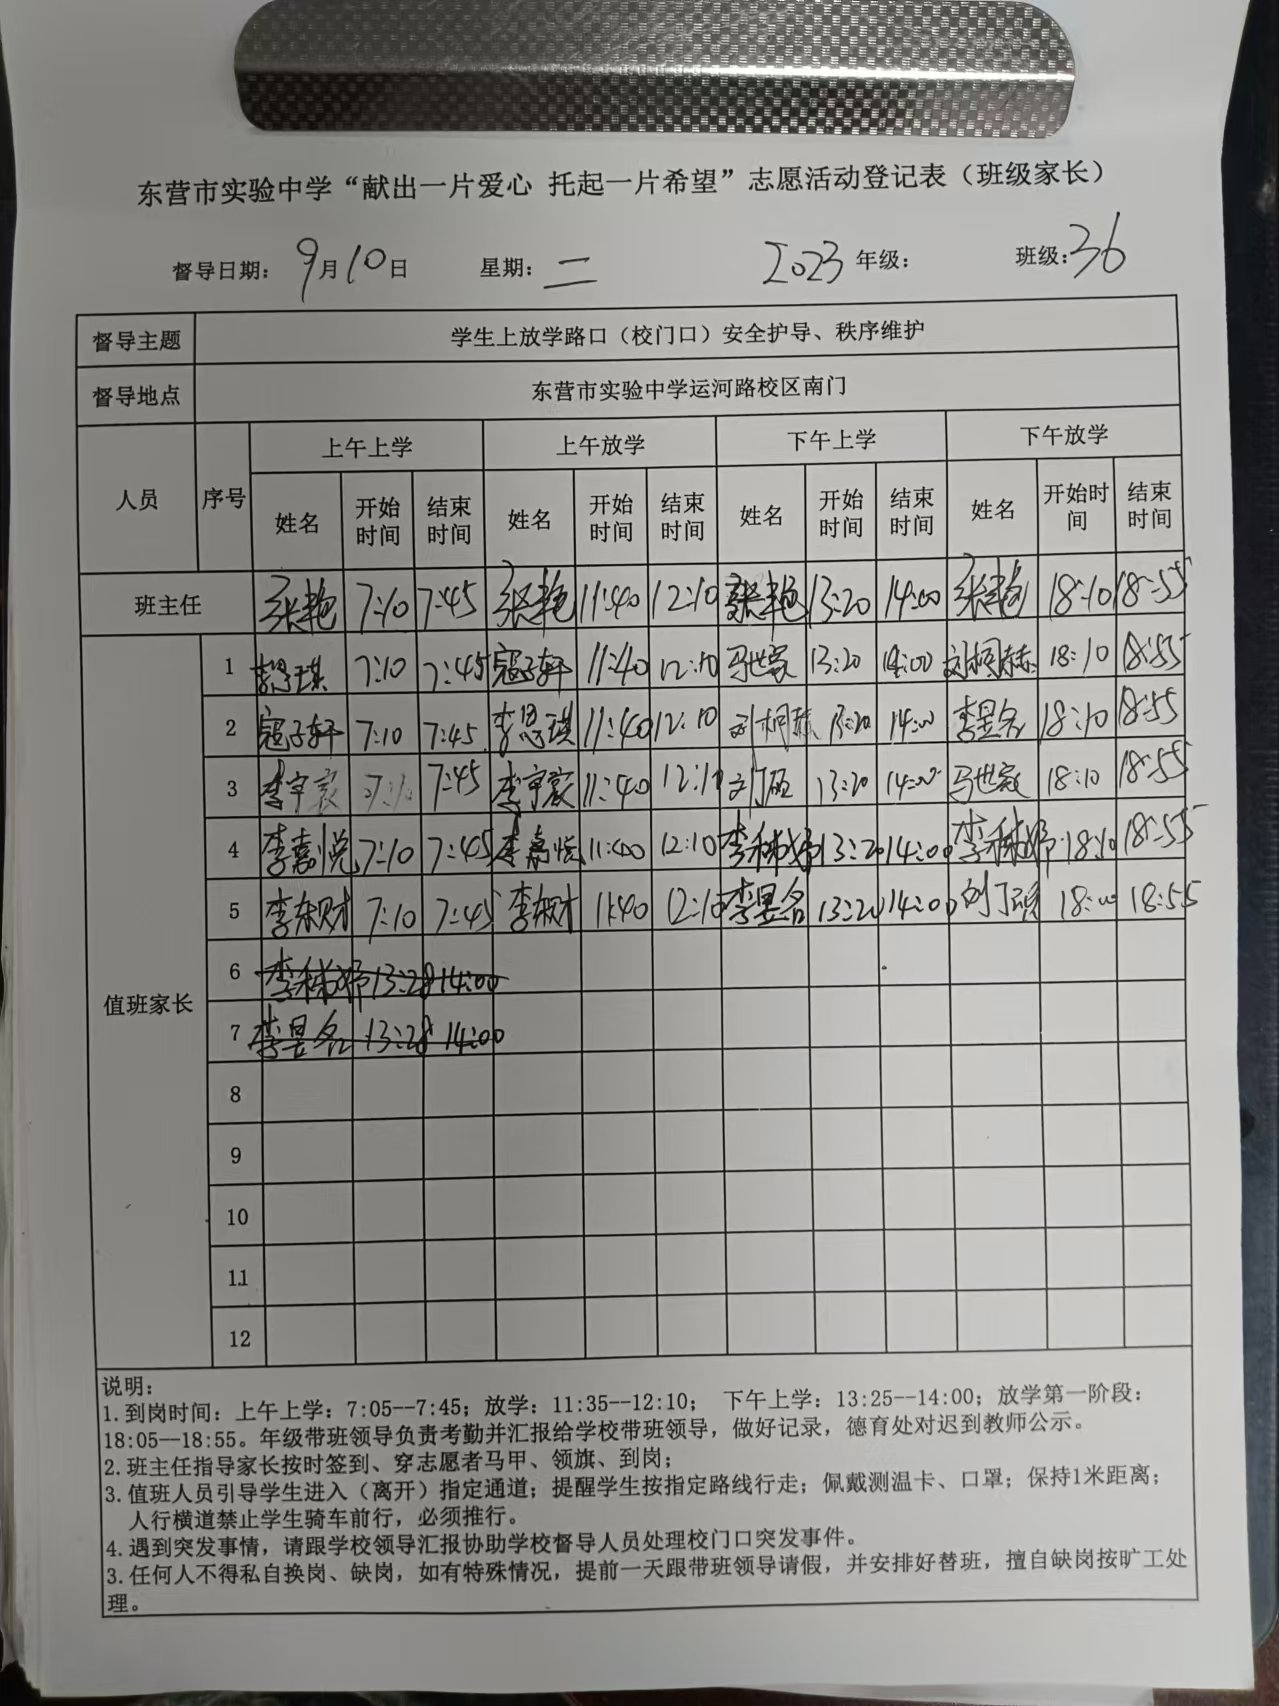 东营市实验中学“献出一片爱心 托起一片希望”志愿活动登记表（班级家长）
督导日期：9月10日 星期：二 2023年级： 班级：36
督导主题 学生上放学路口（校门口）安全护导、秩序维护
督导地点 东营市实验中学运河路校区南门
人员 序号 上午上学 上午放学 下午上学 下午放学
姓名 开始时间 结束时间 姓名 开始时间 结束时间 姓名 开始时间 结束时间 姓名 开始时间 结束时间
班主任 张艳 7:10 7:45 张艳 11:40 12:10 张艳 13:20 14:00 张艳 18:10 18:55
值班家长
1 7:10 7:45 寇子轩 11:40 12:10 马世家 13:20 14:00 刘桐赫 18:10 18:55
2 寇子轩 7:10 7:45 李思琪 11:40 12:10 刘桐赫 13:20 14:00 李昱名 18:10 18:55
3 李宇宸 7:10 7:45 李宇宸 11:40 12:10 13:20 14:00 马世家 18:10 18:55
4 李嘉悦 7:10 7:45 李嘉悦 11:40 12:10 李 13:20 14:00 李 18:10 18:55
5 李东财 7:10 7:45 李东财 11:40 12:10 李昱名 13:20 14:00 刘 18:55
6 李 14:00
7 李昱名 14:00
8
9
10
11
12
说明：
1.到岗时间：上午上学：7:05--7:45；放学：11:35--12:10； 下午上学：13:25--14:00；放学第一阶段：
18:05--18:55。年级带班领导负责考勤并汇报给学校带班领导，做好记录，德育处对迟到教师公示。
2.班主任指导家长按时签到、穿志愿者马甲、领旗、到岗；
3.值班人员引导学生进入（离开）指定通道；提醒学生按指定路线行走；佩戴测温卡、口罩；保持1米距离；
人行横道禁止学生骑车前行，必须推行。
4.遇到突发事情，请跟学校领导汇报协助学校督导人员处理校门口突发事件。
3.任何人不得私自换岗、缺岗，如有特殊情况，提前一天跟带班领导请假，并安排好替班，擅自缺岗按旷工处
理。